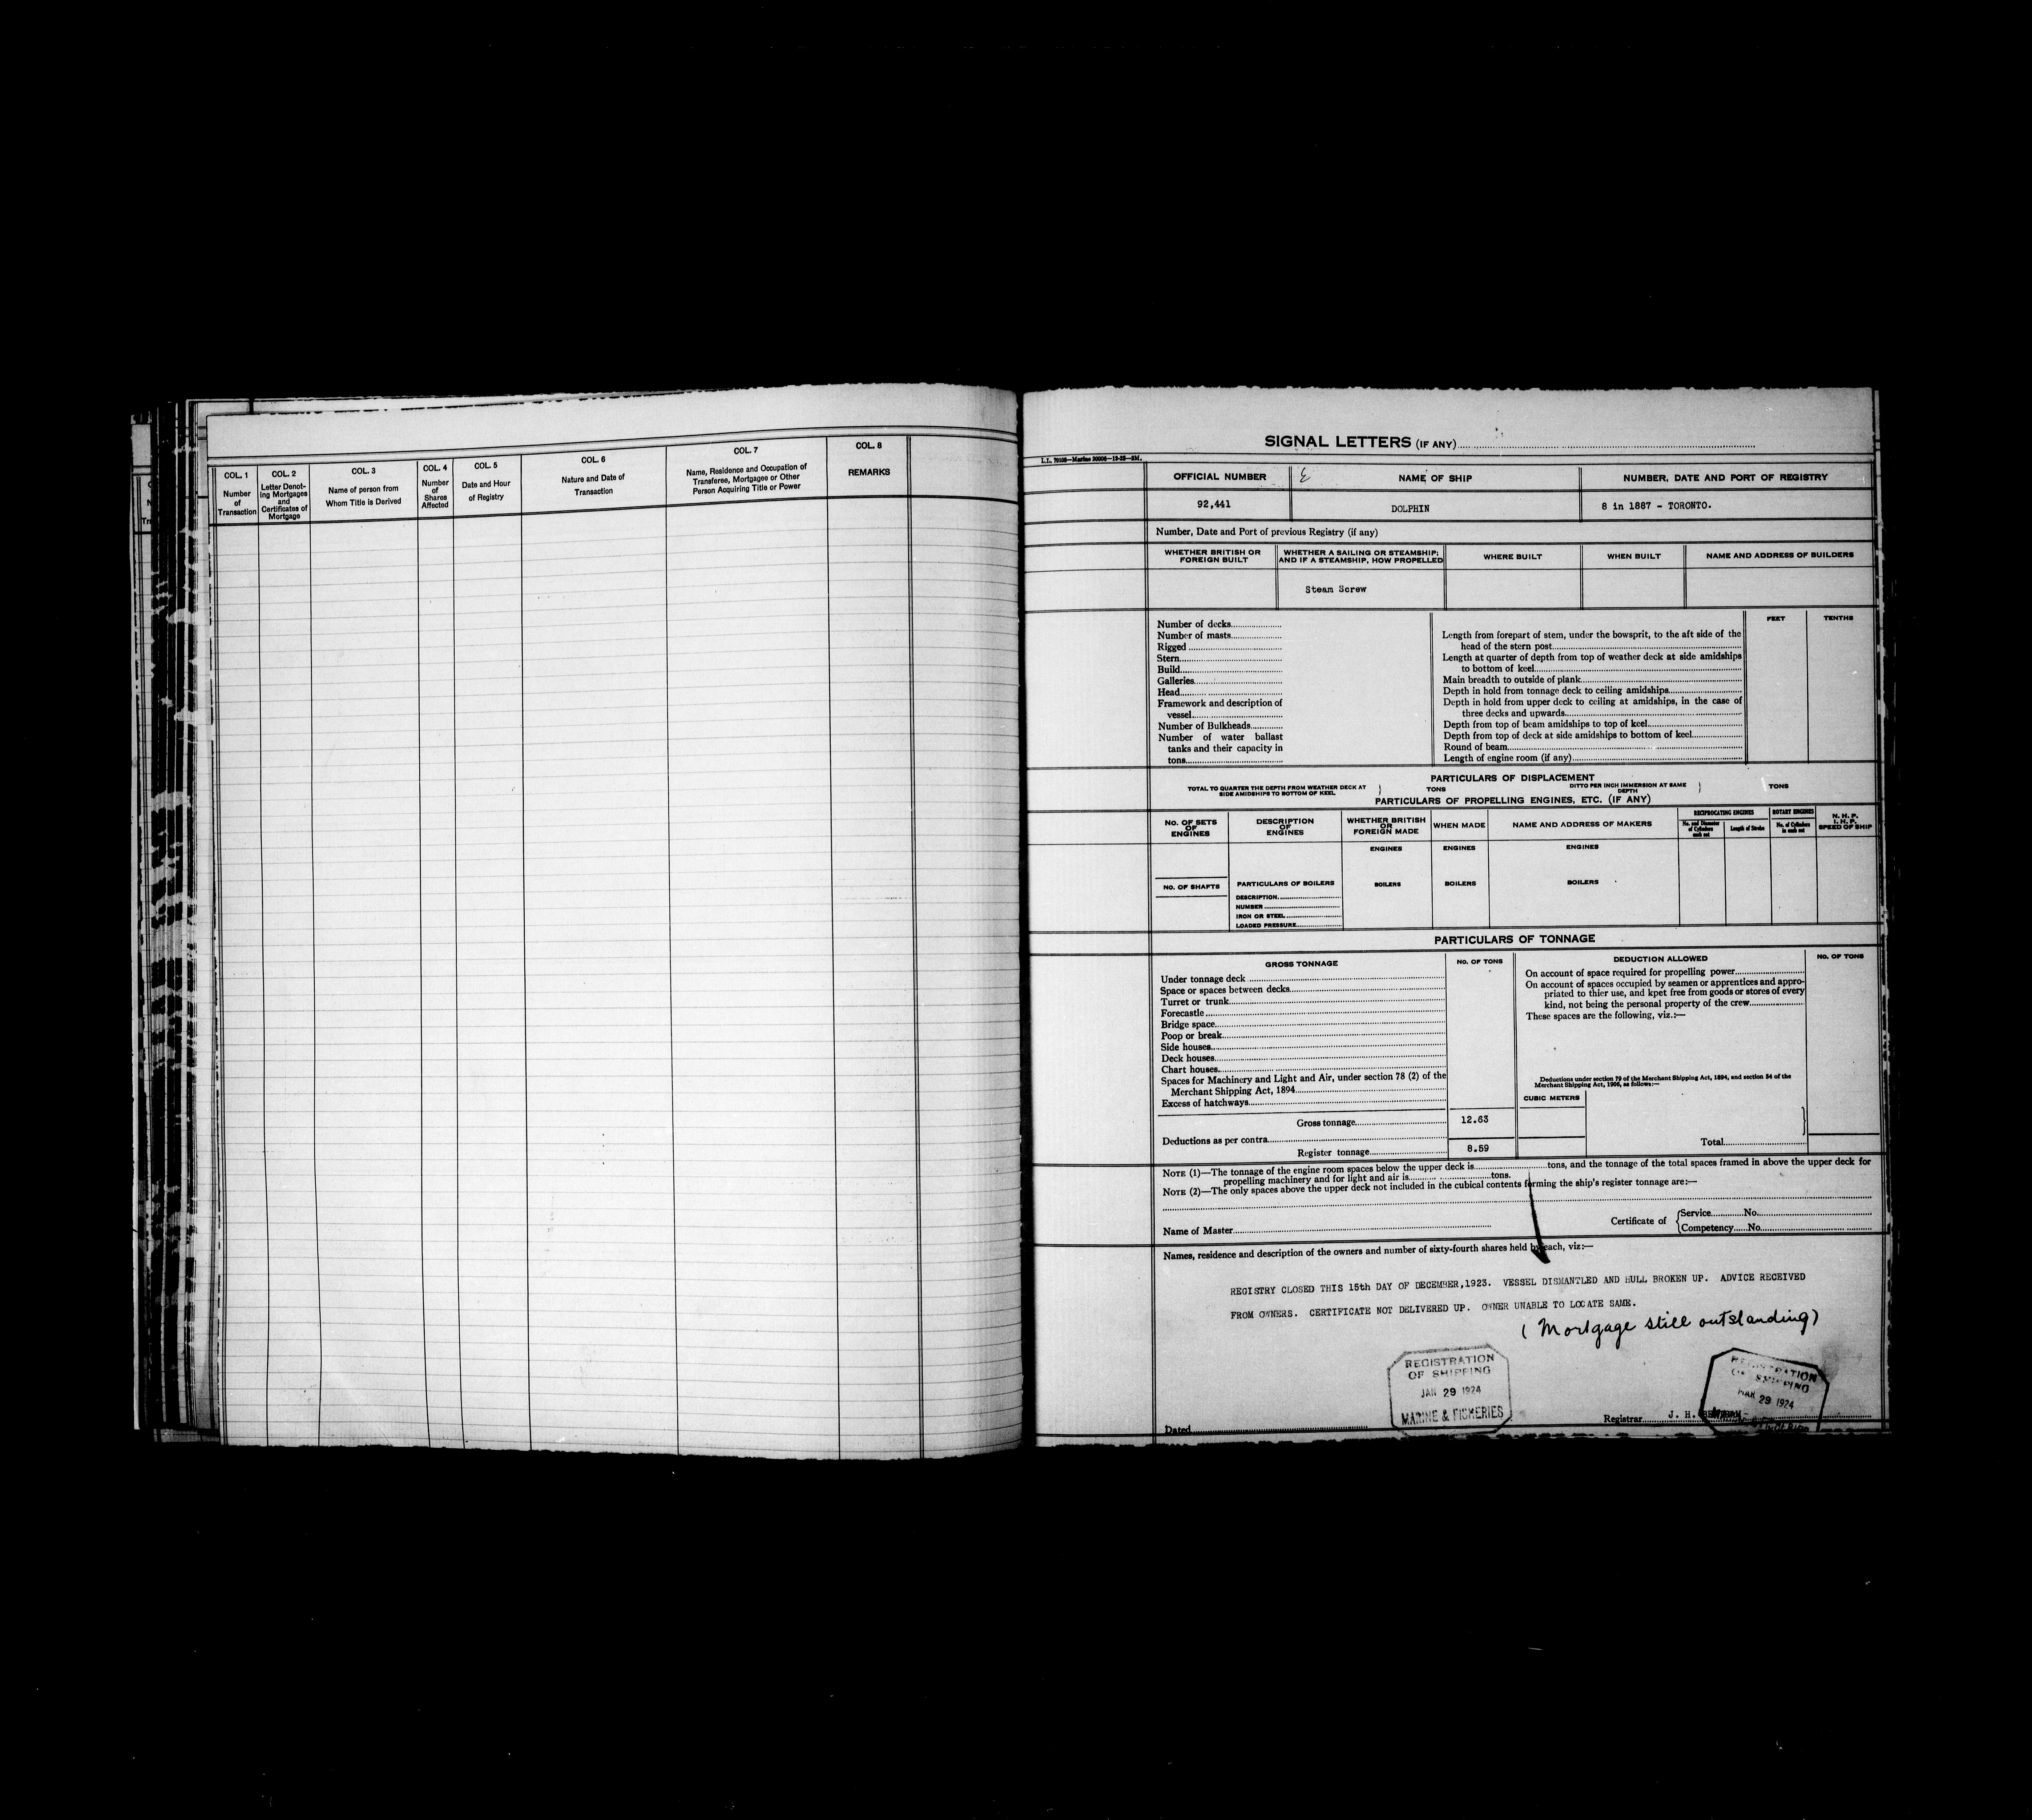 COL. 1
Number
of
Transaction
COL. 2
Letter Denot-
ing Mortgages
and
Certificates of
Mortgage
COL. 3
Name of person from
Whom Title is Derived
COL. 4
Number
of
Shares
Affected
COL. 5
Date and Hour
of Registry
COL. 6
Nature and Date of
Transaction
COL. 7
Name, Residence and Occupation of
Transferee, Mortgagee or Other
Person Acquiring Title or Power
COL. 8
REMARKS
SIGNAL LETTERS (IF ANY)
OFFICIAL NUMBER
NAME OF SHIP
NUMBER, DATE AND PORT OF REGISTRY
92,441
DOLPHIN
8 in 1887 - TORONTO.
Number, Date and Port of previous Registry (if any)
WHETHER BRITISH OR
FOREIGN BUILT
WHETHER A SAILING OR STEAMSHIP;
AND IF A STEAMSHIP, HOW PROPELLED
WHERE BUILT
WHEN BUILT
NAME AND ADDRESS OF BUILDERS
Steam Screw
Number of decks
Number of masts
Rigged
Stern
Build
Galleries
Head
Framework and description of
vessel
Number of Bulkheads
Number of water ballast
tanks and their capacity in
tons
FEET
TENTHS
Length from forepart of stem, under the bowsprit, to the aft side of the
head of the stern post
Length at quarter of depth from top of weather deck at side amidships
to bottom of keel
Main breadth to outside of plank
Depth in hold from tonnage deck to ceiling amidships
Depth in hold from upper deck to ceiling at amidships, in the case of
three decks and upwards
Depth from top of beam amidships to top of keel
Depth from top of deck at side amidships to bottom of keel
Round of beam
Length of engine room (if any)
PARTICULARS OF DISPLACEMENT
TOTAL TO QUARTER THE DEPTH FROM WEATHER DECK AT
SIDE AMIDSHIPS TO BOTTOM OF KEEL
TONS
DITTO PER INCH IMMERSION AT SAME
DEPTH
TONS
PARTICULARS OF PROPELLING ENGINES, ETC. (IF ANY)
No. OF SETS
OF
ENGINES
DESCRIPTION
OF
ENGINES
WHETHER BRITISH
OR
FOREIGN MADE
WHEN MADE
NAME AND ADDRESS OF MAKERS
RECIPROCATING ENGINES
No. and Diameter
of Cylinders
each set
Length of Stroke
ROTARY ENGINES
No. of Cylinders
in each set
N. H. P.
I. H. P.
SPEED OF SHIP
ENGINES
ENGINES
ENGINES
NO. OF SHAFTS
PARTICULARS OF BOILERS
BOILERS
BOILERS
BOILERS
DESCRIPTION
NUMBER
IRON OR STEEL
LOADED PRESSURE
PARTICULARS OF TONNAGE
GROSS TONNAGE
NO. OF TONS
DEDUCTION ALLOWED
NO. OF TONS
Under tonnage deck
Space or spaces between decks
Turret or trunk
Forecastle
Bridge space
Poop or break
Side houses
Deck houses
Chart houses
Spaces for Machinery and Light and Air, under section 78 (2) of the
Merchant Shipping Act, 1894
Excess of hatchways
Gross tonnage
12.63
Deductions as per contra
Register tonnage
8.59
On account of space required for propelling power
On account of spaces occupied by seamen or apprentices and appro-
priated to thier use, and kpet free from goods or stores of every
kind, not being the personal property of the crew
These spaces are the following, viz.:—
Deductions under section 79 of the Merchant Shipping Act, 1894, and section 54 of the
Merchant Shipping Act, 1906, as follows:—
CUBIC METERS
Total
NOTE (1)—The tonnage of the engine room spaces below the upper deck is tons, and the tonnage of the total spaces framed in above the upper deck for
propelling machinery and for light and air is tons.
NOTE (2)—The only spaces above the upper deck not included in the cubical contents forming the ship's register tonnage are:—
Name of Master
Certificate of
Service No.
Competency No.
Names, residence and description of the owners and number of sixty-fourth shares held by each, viz:—
REGISTRY CLOSED THIS 15th DAY OF DECEMBER, 1923. VESSEL DISMANTLED AND HULL BROKEN UP. ADVICE RECEIVED
FROM OWNERS. CERTIFICATE NOT DELIVERED UP. OWNER UNABLE TO LOCATE SAME.
(Mortgage still outstanding)
REGISTRATION
OF SHIPPING
JAN 29 1924
MARINE & FISHERIES
REGISTRATION
OF SHIPPING
29 1924
Dated
Registrar J. H.